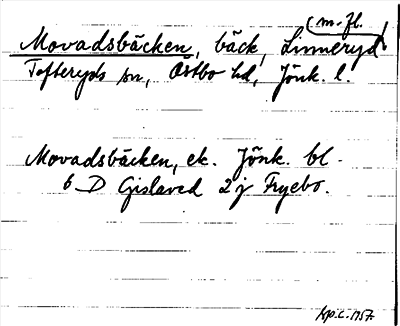 (m. fl.
Movadsbäcken, bäck, Linneryd
Tofteryds sn, Östbo hd, Jönk. l.
Movadsbäcken, ek. Jönk. bl.
6 D Gislaved 2 j Fryebo.
Kp.c. 1957.